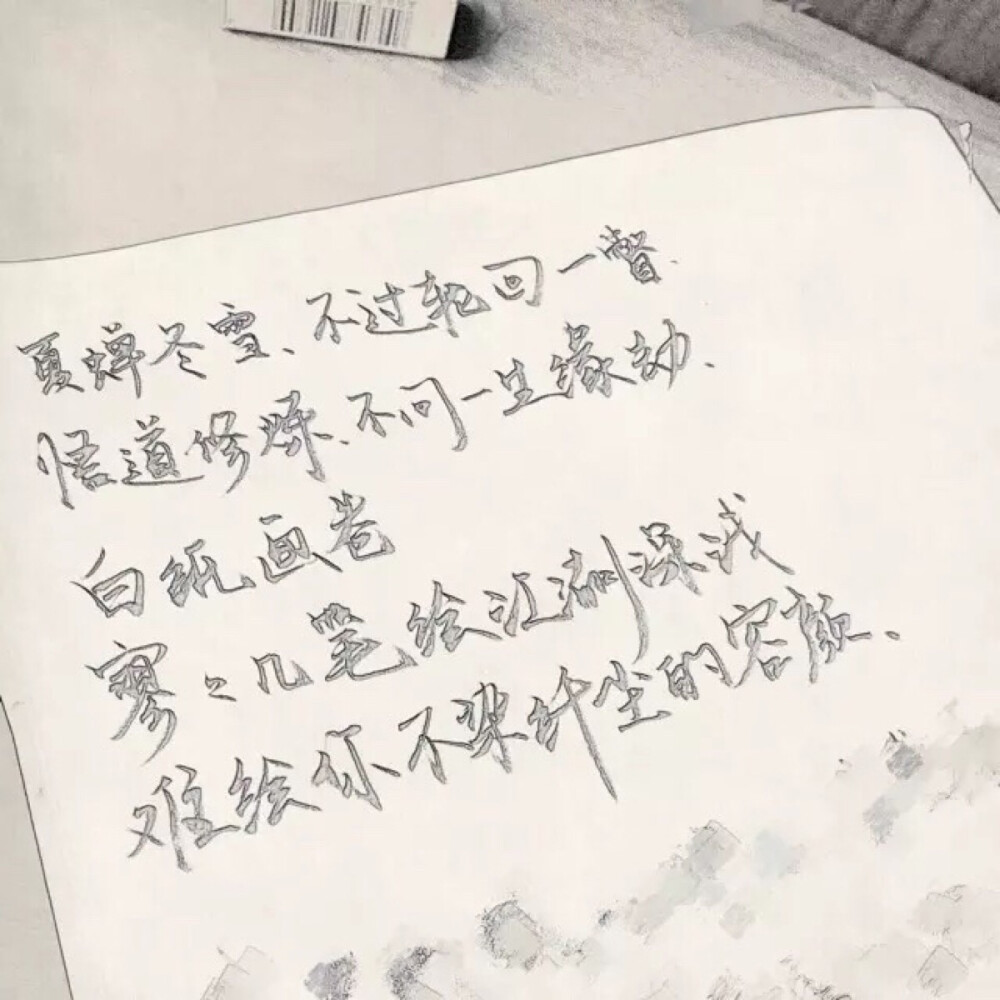 夏蝉冬雪、不过轮回一瞥.
悟道修炼、不问一生缘劫.
白纸画卷
寥々几笔绘江湖深浅
难绘你不染纤尘的容颜.